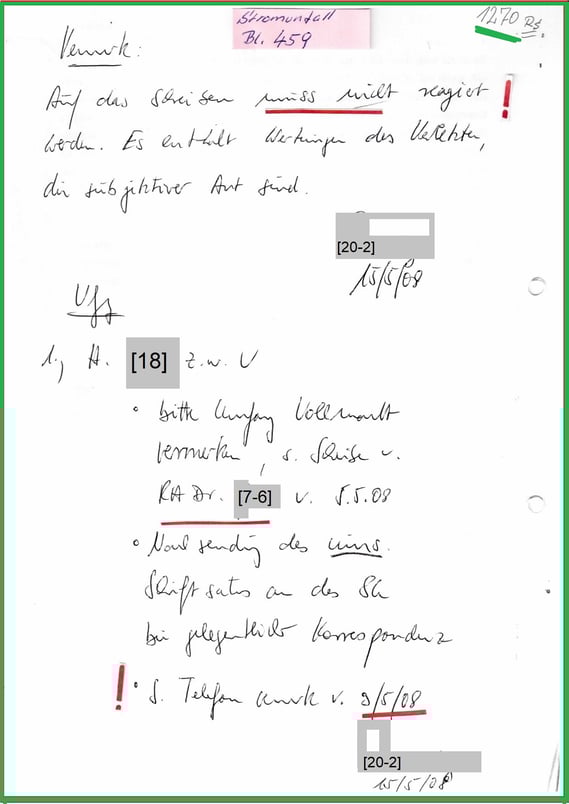 Stromunfall
Bl. 459
1270 RS.
Vermerk:
Auf das Schreiben muss nicht reagiert !
werden. Es enthält Wertungen des Verletzten,
die subjektiver Art sind.
[20-2]
15/5/08
Vfg
1., H. [18] z.w. V
° bitte Umfang Vollmacht
vermerken, s. Schreiben v.
RA Dr. [7-6] v. 5.5.08
° Nachsendung des
Schriftsatzes an des
bei gelegentlicher Korrespondenz
! ° S. Telefonvermerk v. 9/5/08
[20-2]
15/5/08